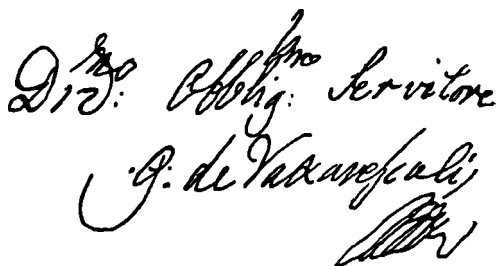 Div:mo Obblig:mo Servitore
G: de Vaccarescali